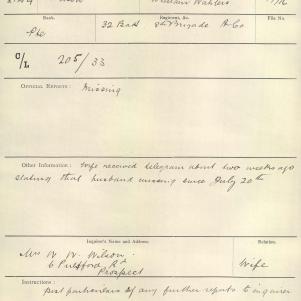 William Walters
Rank.
Regiment, &c.
File No.
Pte
32 Batt 8th Brigade A Co
C/L 205/33
OFFICIAL REPORTS: Missing
Other Information: Wife received telegram about two weeks ago
stating that husband missing since July 20th
Inquirer's Name and Address.
Relation.
Mrs W. W. Wilson
6 Pulsford Rd
Prospect
Wife
Instructions:
Post particulars of any further reports to inquirer